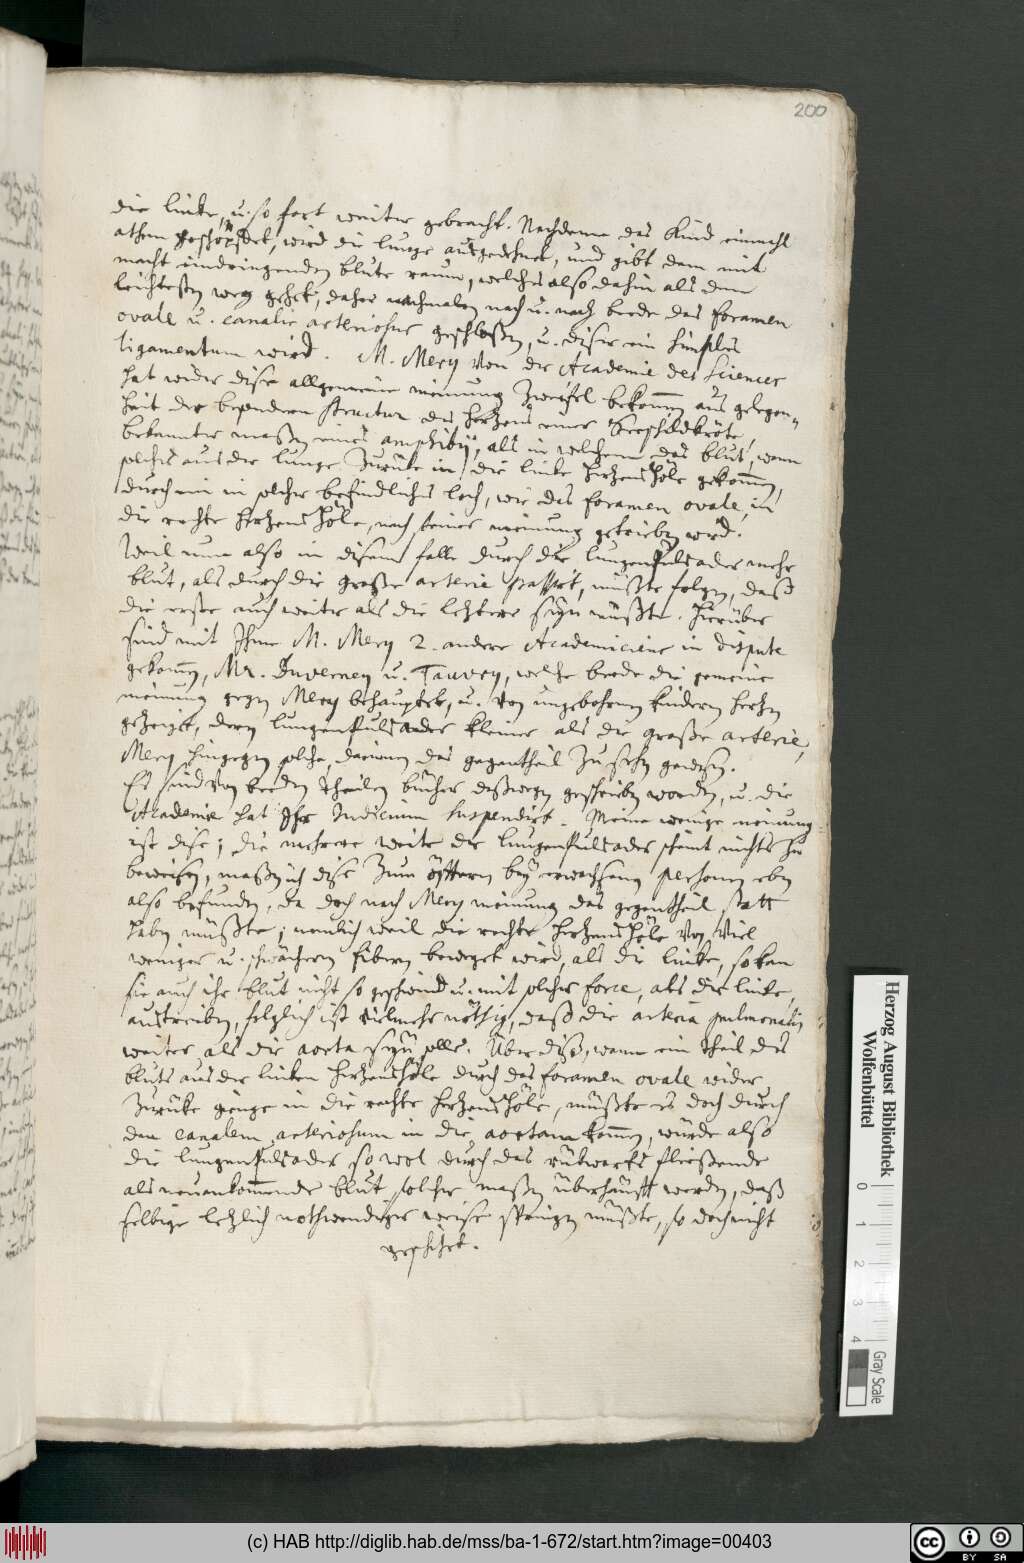 200
die linke, u. so fort weiter gebracht. Nachdeme das Kind einmahl
athem geschöpfet, wird die lunge außgedehnet, und gibt dem mit
macht eindringenden blute raum, welches also dahin als dem
leichtesten weg gehet, daher nachmalen nach u. nach beede das foramen
ovale u. canalis arteriosus geschloßen, u. diser ein simples
ligamentum wird. M. Mery von der Academie des Sciences
hat wider dise allgemeine meinung Zweifel bekomen aus gelegen-
heit der besondern structur des herzens einer Seeschildkröte,
bekannter maßen eines amphibij, als in welchem das blut, wann
solches aus der lunge Zurüke in die linke herzens Höle gekomen,
durch ein in solcher befindliches loch, wie das foramen ovale, in
die rechte herzens Höle, nach seiner meinung getrieben wird.
Weil nun also in disem falle durch die lungenpulsader mehr
blut, als durch die große arterie passirt, müßte folgen, daß
die erste auch weiter als die leztere seyn müßte. Hierüber
sind mit Ihme M. Mery 2. andere Academiciens in dispute
gekomen, Mr. Duverney u. Tauvry, welche beede die gemeine
meinung gegen Mery behauptet, u. von ungebohrnen kindern herzen
gezeiget, deren lungenpulsader kleiner als die große arterie,
Mery hingegen solche, darinnen das gegentheil Zu sehen gewesen.
Es sind von beeden theilen bücher deßwegen geschrieben worden, u. die
Academie hat Ihr Judicium suspendirt. Meine wenige meinung
ist dise; die mehrere weite der lungenpulsader scheint nichts zu
beweisen, maßen ich dise Zum öfftern bey erwachsenen personen eben
also befunden, da doch nach Mery meinung das gegentheil statt
haben müßte; nemlich weil die rechte herzens Höle von viel
weniger u. schwächern fibern beweget wird, als die linke, so kan
sie auch ihr blut nicht so geschwind u. mit solcher force, als die linke,
austreiben, folglich ist vielmehr nöthig, daß die arteria pulmonalis
weiter als die aorta seyn solle. Über diß, wann ein theil des
bluts aus der linken herzens Höle durch das foramen ovale wider
Zurüke gienge in die rechte herzens Höle, müßte es doch durch
den canalem arteriosum in die aortam komen, würde also
die lungenpulsader so wol durch das rükwarts fließende
als neuankomende blut solcher maßen überhäufft werden, daß
selbige lezlich nothwendiger weise springen müßte, so doch nicht
geschihet.
Herzog August Bibliothek
Wolfenbüttel
0 1 2 3 4
Gray Scale
(c) HAB http://diglib.hab.de/mss/ba-1-672/start.htm?image=00403
cc BY SA